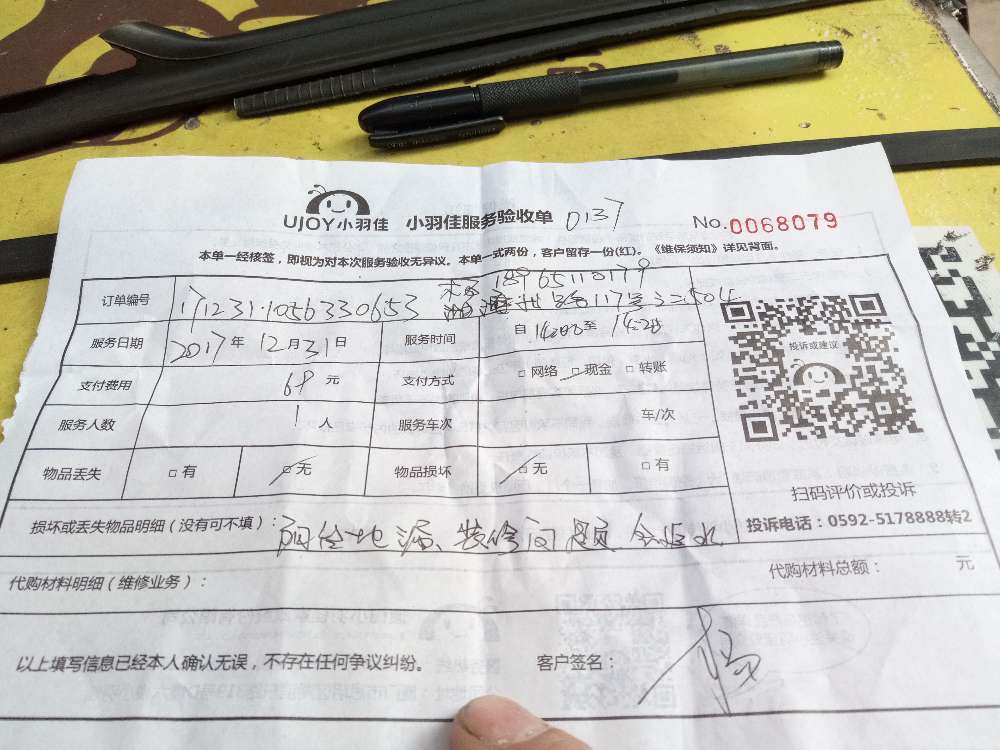 UJOY小羽佳 小羽佳服务验收单 0137 No.0068079
本单一经核签，即视为对本次服务验收无异议。本单一式两份，客户留存一份(红)。《维保须知》详见背面。
18965113179
订单编号 171231·1056330653 117号 504
服务日期 2017年12月31日 服务时间 自 至 14:25
支付费用 68 元 支付方式 □网络 □现金 □转账
服务人数 1 人 服务车次 车/次
物品丢失 □有 □无 物品损坏 □无 □有
投诉或建议
扫码评价或投诉
投诉电话：0592-5178888转2
损坏或丢失物品明细（没有可不填）： 阳台地漏、装修问题会返水
代购材料明细（维修业务）： 代购材料总额： 元
以上填写信息已经本人确认无误，不存在任何争议纠纷。 客户签名： 杨